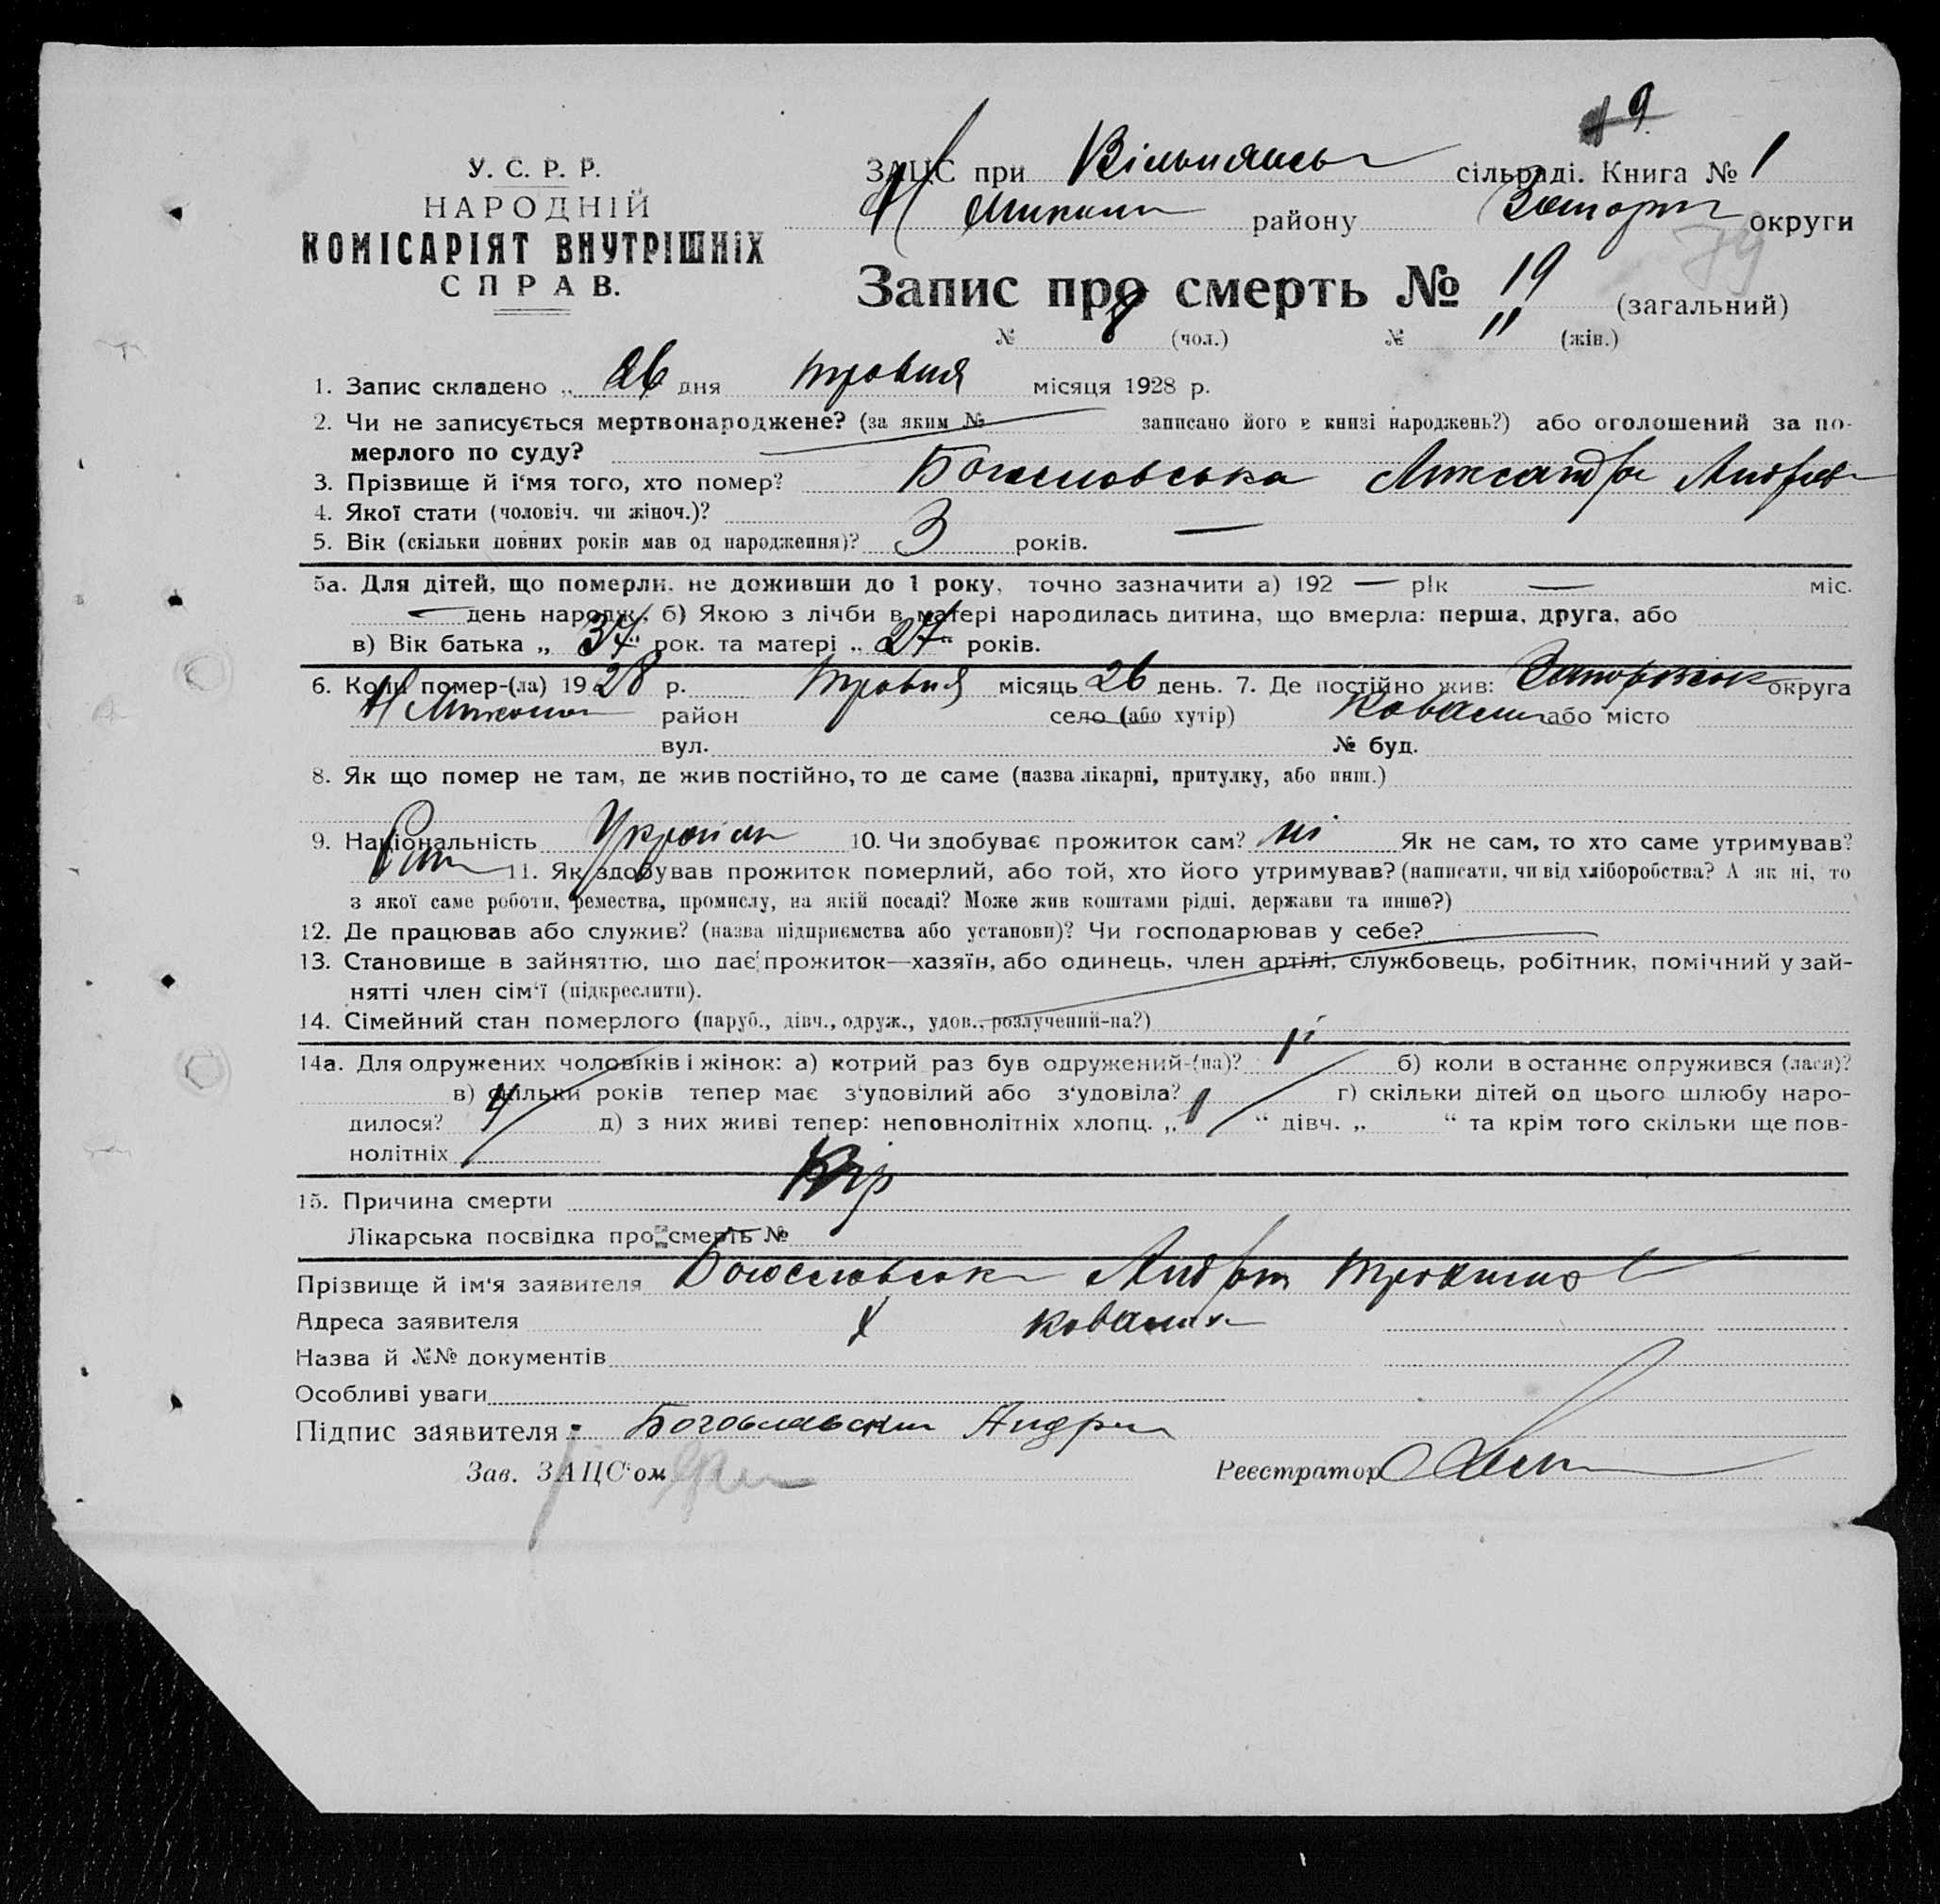 9
У. С. Р. Р.
НАРОДНІЙ
КОМІСАРІЯТ ВНУТРІШНІХ
СПРАВ.
ЗАЦС при Вільнянсь сільраді. Книга № 1
району округи
79
Запис про смерть № 19 (загальний)
№ 8 (чол.) № " (жін.)
1. Запис складено „ 26 дня травня місяця 1928 р.
2. Чи не записується мертвонароджене? (за яким № записано його в книзі народжень?) або оголошений за по-
мерлого по суду?
3. Прізвище й і'мя того, хто помер? Богословська Александра Андреев
4. Якої стати (чоловіч. чи жіноч.)?
5. Вік (скільки повних років мав од народження)? 3 років. —
5а. Для дітей, що померли, не доживши до 1 року, точно зазначити а) 192 — рік — міс.
— день народж., б) Якою з лічби в матері народилась дитина, що вмерла: перша, друга, або
в) Вік батька „ 37 " рок. та матері „ 27 " років.
6. Коли помер-(ла) 1928 р. травня місяць 26 день. 7. Де постійно жив: Запорізьк округа
район село (або хутір) або місто
вул. № буд.
8. Як що помер не там, де жив постійно, то де саме (назва лікарні, притулку, або инш.)
9. Національність Україн 10. Чи здобуває прожиток сам? ні Як не сам, то хто саме утримував?
11. Як здобував прожиток померлий, або той, хто його утримував? (написати, чи від хліборобства? А як ні, то
з якої саме роботи, ремества, промислу, на якій посаді? Може жив коштами рідні, держави та инше?)
12. Де працював або служив? (назва підприємства або установи)? Чи господарював у себе?
13. Становище в зайняттю, що дає прожиток—хазяїн, або одинець, член артілі, службовець, робітник, помічний у зай-
нятті член сім'ї (підкреслити).
14. Сімейний стан померлого (паруб., дівч., одруж., удов., розлучений-на?)
14а. Для одружених чоловіків і жінок: а) котрий раз був одружений-(на)? б) коли в останнє одружився (лася)?
в) скільки років тепер має з'удовілий або з'удовіла? г) скільки дітей од цього шлюбу наро-
дилося? 4 д) з них живі тепер: неповнолітніх хлопц. „ 1 " дівч. „ " та крім того скільки ще пов-
нолітніх
15. Причина смерти Кір
Лікарська посвідка про смерть №
Прізвище й ім'я заявителя Богословськ Андрей
Адреса заявителя х
Назва й №№ документів
Особливі уваги
Підпис заявителя: Богославский Андрей
Зав. ЗАЦС'ом Реєстратор